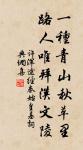 一種青山秋草里
路人唯拜漢文陵
許渾途經秦始皇墓詞
典調集